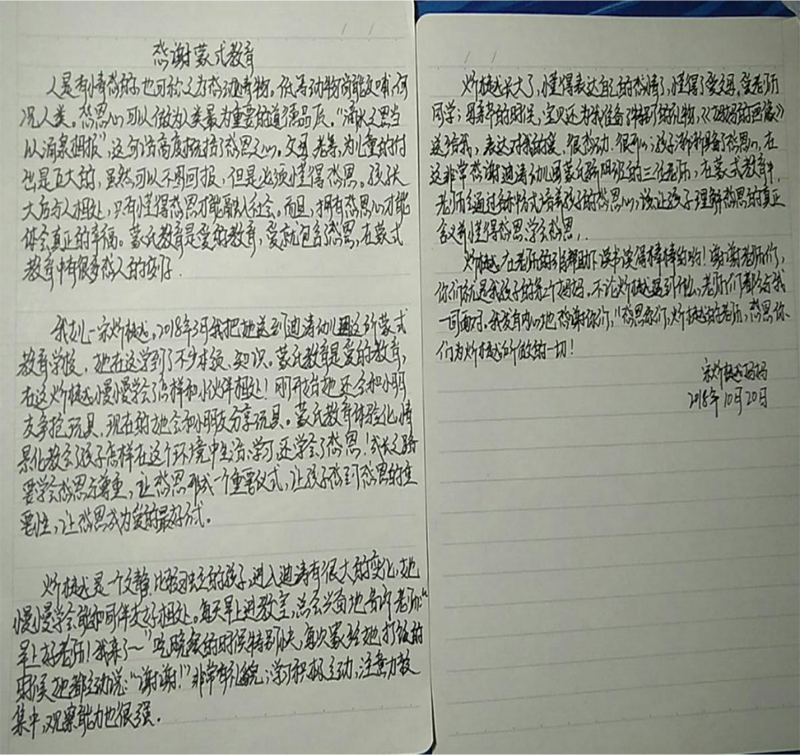 感谢蒙式教育
人是有情感的,也可称之为感动动物。低等动物尚能反哺,何
况人类。感恩心可以做为人类最为重要的道德品质。"滴水之恩当
以涌泉相报",这句话高度概括了感恩之心。父母、老等,为儿童的付
出是巨大的,虽然可以不图回报,但是必须懂得感恩。孩子长
大后与人相处,只有懂得感恩才能融入社会。而且,拥有感恩心才能
体会真正的幸福。蒙氏教育是爱的教育,爱就包含感恩,在蒙式
教育中有很多感人的实例。
我女儿一宋炉樾,2018年3月我把她送到迪涛幼儿园这所蒙式
教育学校,她在这学到了不少本领、知识。蒙氏教育是爱的教育,
在这炉樾慢慢学会了怎样和小伙伴相处!刚开始她还会和小朋
友争抢玩具,现在的她会和小朋友分享玩具。蒙氏教育体验化、情
景化教会了孩子怎样在这个环境中生活、学习,还学会了感恩!成长之路
要学会感恩与尊重,让感恩形成一个重要仪式,让孩子感到感恩的重
要性,让感恩成为爱的最好方式。
炉樾是一个文静、比较独立的孩子,进入迪涛有很大的变化,她
慢慢学会能和同伴友好相处。每天早上进教室,总会兴奋地告诉老师"
早上好老师!我来了~"吃晚餐的时候特别快,每次蒙给她打饭的
时候她都主动说:"谢谢!"非常有礼貌;学习积极主动,注意力较
集中,观察能力也很强。
炉樾长大了,懂得表达自己的感情了,懂得了爱父母、爱老师
同学;母亲节的时候,宝贝还为我准备了特别的礼物,《妈妈的画像》
送给我,表达对我的爱。很感动、很开心;孩子渐渐具备了感恩心,在
这非常感谢迪涛幼儿园蒙氏 班的三位老师,在蒙式教育中,
老师们通过各种方式培养孩子的感恩心,该让孩子理解感恩的真正
含义并懂得感恩、学会感恩,
炉樾在老师的 帮助下读书读得棒棒的哟!谢谢老师们,
你们就是我孩子的第二个妈妈,不论炉樾遇到什么,老师们都会给我
一同面对。我发自内心地感谢你们,"感恩你们,炉樾的老师,感恩你
们为炉樾所做的一切!
宋炉樾妈妈
2018年10月20日